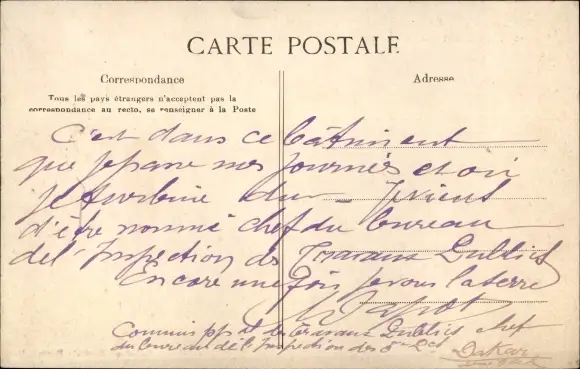 CARTE POSTALE
Correspondance
Adresse
Tous les pays étrangers n'acceptent pas la
correspondance au recto, se renseigner à la Poste
C'est dans ce bâtiment
que je passe mes journées et où
je turbine dur – Je viens
d'être nommé chef du bureau
de l'Inspection des Travaux Publics
Encore une fois je vous la serre
Commis pp et des Travaux Publics chef
du bureau de l'Inspection des
Dakar